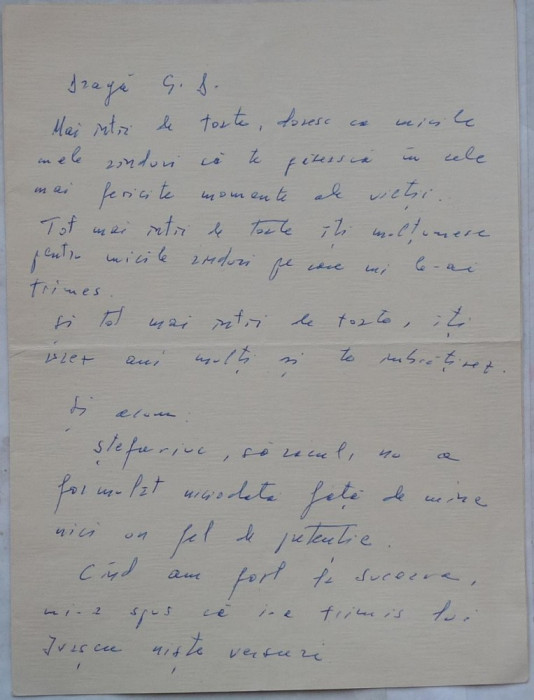 Dragă G. D.
Mai întîi de toate, doresc ca micile
mele rînduri să te găsească în cele
mai fericite momente ale vieții.
Tot mai întîi de toate îți mulțumesc
pentru micile rînduri pe care mi le-ai
trimes.
Și tot mai întîi de toate, îți
urez ani mulți și te îmbrățișez.
Și acum:
Ștefaniuc, săracul, nu a
formulat niciodată față de mine
nici un fel de pretenție.
Cînd am fost la Suceava,
mi-a spus că i-a trimis lui
niște versuri